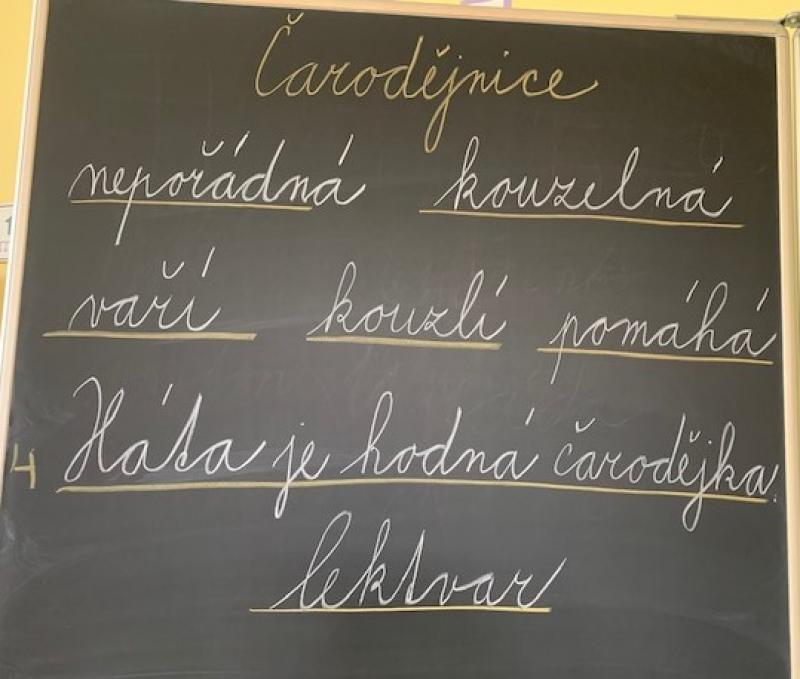 Čarodějnice
nepořádná kouzelná
vaří kouzlí pomáhá
4 Háta je hodná čarodějka.
lektvar